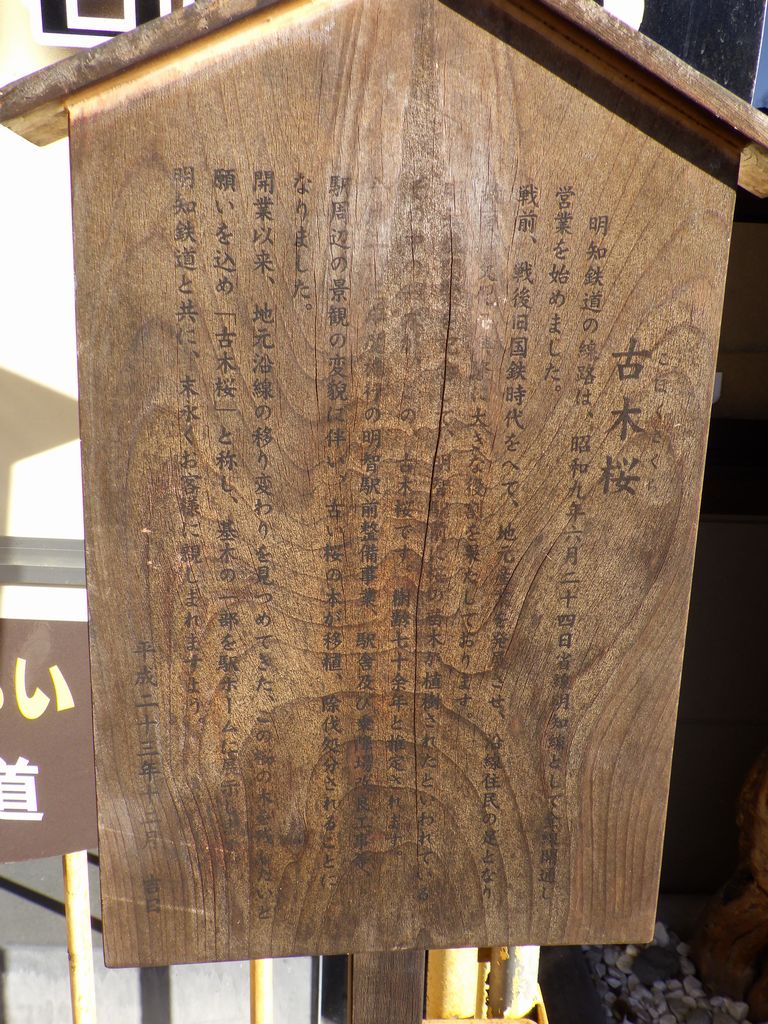 古木桜
明知鉄道の線路は、昭和九年六月二十四日 明知線として全線開通し
営業を始めました。
戦前、戦後旧国鉄時代をへて、地元 を発 させ、沿線住民の足となり
に大きな役割を果たしております
明智駅前に の苗木が植樹されたといわれている
の 古木桜です。樹齢七十余年と推定されます。
施行の明智駅前整備事業、駅舎及び乗降場改良工事
駅周辺の景観の変貌に伴い、古い桜の木が移植、除伐処分されることに
なりました。
開業以来、地元沿線の移り変わりを見つめてきた、この 木を残したいと
願いを込め「古木桜」と称し、基木の一部を駅ホームに展示
明知鉄道と共に、末永くお客様に親しまれますよう。
平成二十三年十二月 吉日
い
道